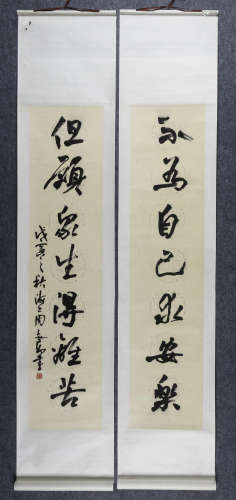 不為自己求安樂
但願眾生得離苦
戊寅之秋